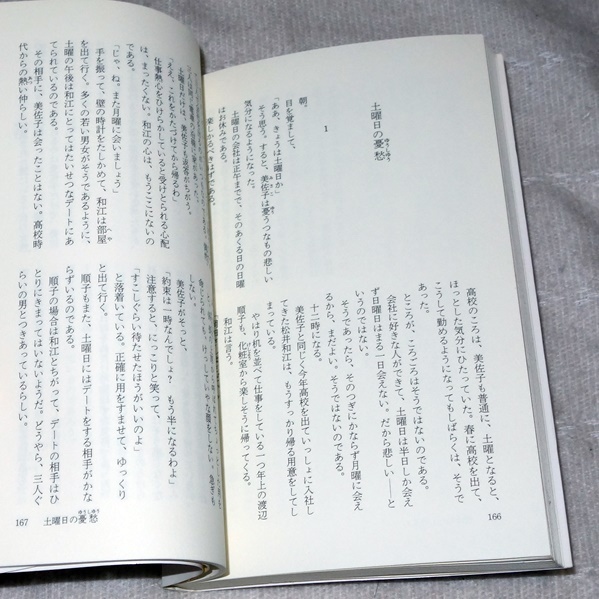 土曜日の憂愁
ゆうしゅう
1
朝。
目を覚まして、
「ああ、きょうは土曜日か」
そう思う。すると、美佐子は憂うつなもの悲しい
気分になるようになった。
土曜日の会社は正午までで、そのあくる日の日曜
はお休みである。
楽しかるべきはずである。
高校のころは、美佐子も普通に、土曜となると、
ほっとした気分にひたっていた。春に高校を出て、
こうして勤めるようになってもしばらくは、そうで
あった。
ところが、ころごろはそうではないのである。
会社に好きな人ができて、土曜日は半日しか会え
ず日曜日はまる一日会えない。だから悲しい――と
いうのではない。
そうであったら、そのつぎにかならず月曜に会え
るから、まだよい。そうではないのである。
十二時になる。
美佐子と同じく今年高校を出ていっしょに入社し
てきた松井和江は、もうすっかり帰る用意をしてし
まっている。
やはり机を並べて仕事をしている一つ年上の渡辺
順子も、化粧室から楽しそうに帰ってくる。
和江は言う。
166
土曜日だけは、美佐子も返答がちがう。
「ええ。これをかたづけてから帰るわ」
仕事熱心をひけらかしていると受けとられる心配
は、まったくない。和江の心は、もうここにないの
である。
「じゃ、ね。また月曜に会いましょう」
手を振って、壁の時計をたしかめて、和江は部屋
へや
を出て行く。多くの若い男女がそうであるように、
土曜の午後は和江にとってはたいせつなデートにあ
てられているのである。
その相手に、美佐子は会ったことはない。高校時
代からの熱い仲らしい。
しない。
美佐子がそっと、
「約束は一時なんでしょ？ もう半になるわよ」
注意すると、にっこりと笑って、
「すこしぐらい待たせたほうがいいのよ」
と落着いている。正確に用をすませて、ゆっくり
と出て行く。
順子もまた、土曜日にはデートをする相手がかな
らずいるのである。
順子の場合は和江とちがって、デートの相手はひ
とりにきまってはいないようだ。どうやら、三人ぐ
らいの男とつきあっているらしい。
167 土曜日の憂愁
ゆうしゅう